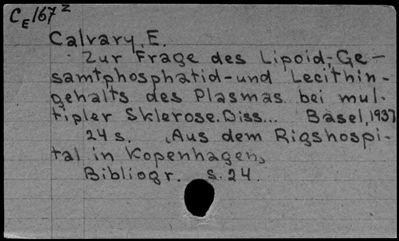 CE/167 z
Calvary, E.
Zur Frage des Lipoid-, Ge-
samtphosphatid-und Lecithin-
gehalts des Plasmas bei mul-
tipler Sklerose. Diss... Basel, 1937
24 s. (Aus dem Rigshospi-
tal in Kopenhagen)
Bibliogr. s. 24.